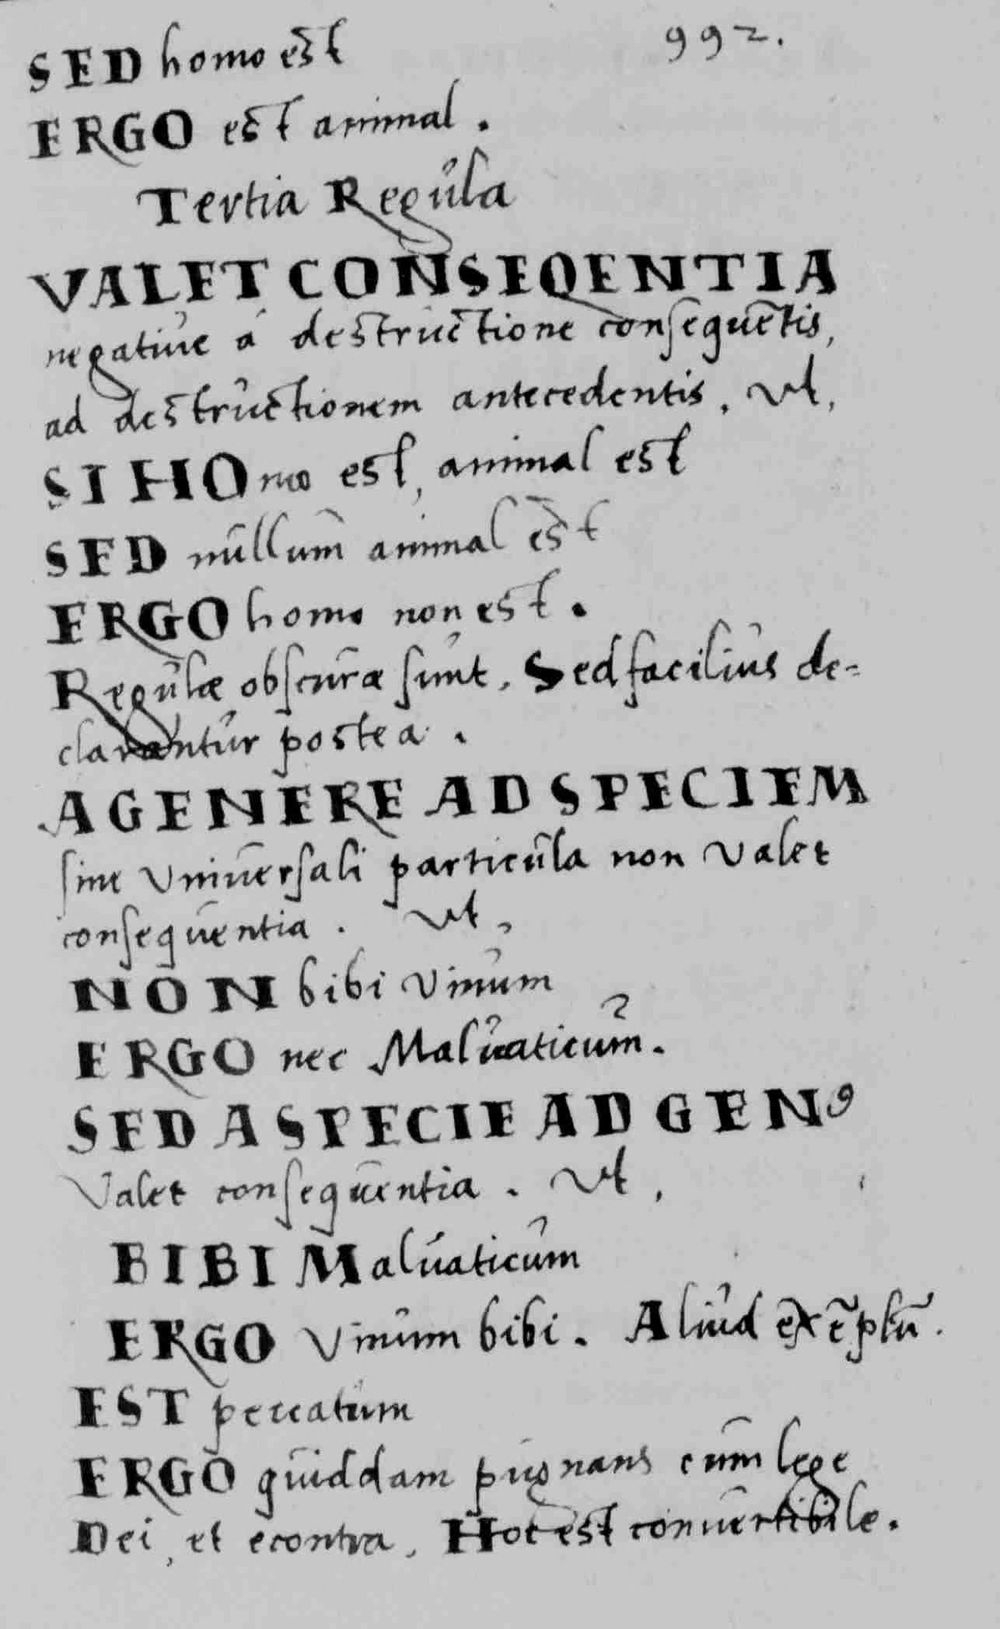 992.
SED homo est
ERGO est animal.
Tertia Regula
VALET CONSEQENTIA
negatiue á destructione consequētis,
ad destructionem antecedentis. Vt,
SI HOmo est, animal est
SED nullum animal est
ERGO homo non est.
Regulæ obscuræ sunt. Sed facilius de=
clarantur postea.
A GENERE AD SPECIEM
sine Vniuersali particula non valet
consequentia. Vt,
NON bibi vinum
ERGO nec Maluaticum.
SED A SPECIE AD GENꝰ
Valet consequentia. Vt,
BIBI Maluaticum
ERGO vinum bibi. Aliud exēplū.
EST peccatum
ERGO quiddam pugnans cum lege
Dei, et econtra. Hoc est conuertibile.